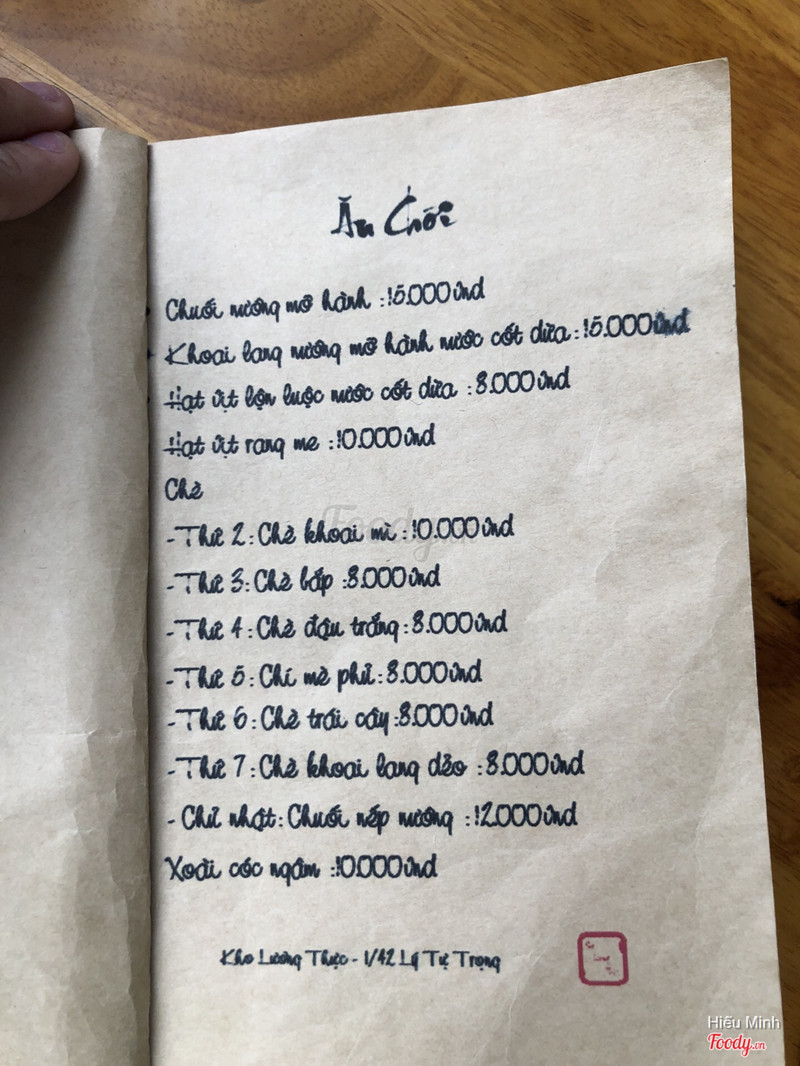 Ăn Chơi
Chuối nướng mỡ hành : 15.000 vnd
Khoai lang nướng mỡ hành nước cốt dừa : 15.000 vnd
Hạt vịt lộn luộc nước cốt dừa : 8.000 vnd
Hạt vịt rang me : 10.000 vnd
Chè
- Thứ 2 : Chè khoai mì : 10.000 vnd
- Thứ 3 : Chè bắp : 8.000 vnd
- Thứ 4 : Chè đậu trắng : 8.000 vnd
- Thứ 5 : Chí mè phủ : 8.000 vnd
- Thứ 6 : Chè trái cây : 8.000 vnd
- Thứ 7 : Chè khoai lang dẻo : 8.000 vnd
- Chủ nhật : Chuối nếp nướng : 12.000 vnd
Xoài cóc ngâm : 10.000 vnd
Kho Lương Thực - 1/42 Lý Tự Trọng
Foody.vn
Hiếu Minh
Foody.vn